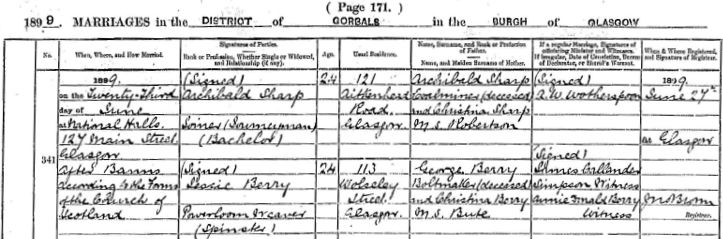 ( Page 171. )
1899. MARRIAGES in the DISTRICT of GORBALS in the BURGH of GLASGOW
No. When, Where, and How Married. Signatures of Parties. Rank or Profession, Whether Single or Widowed, and Relationship (if any). Age. Usual Residence. Name, Surname, and Rank or Profession of Father. Name, and Maiden Surname of Mother. If a regular Marriage, Signatures of officiating Minister and Witnesses. If irregular, Date of Conviction, Decree of Declarator, or Sheriff's Warrant. When & Where Registered, and Signature of Registrar.
341
1899.
on the Twenty-Third
day of June
at National Halls.
127 Main Street.
Glasgow
After Banns
according to the Forms
of the Church of
Scotland
(Signed)
Archibald Sharp
Joiner (Journeyman)
(Bachelor)
24
121
Aitkenhead
Road
Glasgow
Archibald Sharp
Coalminer (deceased)
and Christina Sharp
M.S. Robertson
(Signed)
A. W. Wotherspoon
1899.
June 27th
at Glasgow
(Signed)
Jessie Berry
Powerloom Weaver
(Spinster)
24
113
Wolseley
Street.
Glasgow.
George Berry
Boltmaker (deceased)
and Christina Berry
M.S. Bute
(Signed)
James Callander
Simpson Witness
Annie Berry
Witness
Registrar.